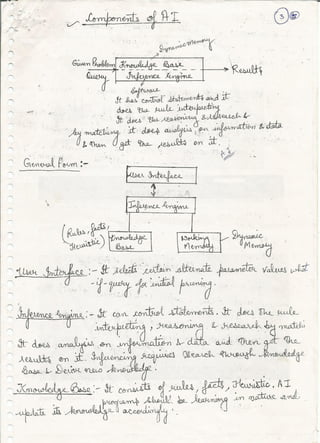 Components of AI
5
Dynamic Memory
Given Problem
Query
Knowledge Base
Inference Engine
Results
Software
It has control statements and it
does the rule interpreting
It does the reasoning & research &
by matching it does analysis on information & data
& then get the results on it.
A.I
General Form :-
User Interface
Inference Engine
(Rules, facts,
Heuristic)
Knowledge
Base
Working
Memory
Dynamic
Memory
User Interface :- It selects certain alternate parameter values what
-if- query for initial pruning.
Inference Engine :- It can control statements. It does the rule
interpreting, reasoning & research by matchi
It does analysis on information & data and then get the
results on it. Inferencing requires search through knowledge
base & derive new knowledge.
Knowledge Base :- It consists of rules, facts, Heuristic. A I
programs should be learning in nature and
-update its knowledge accordingly.